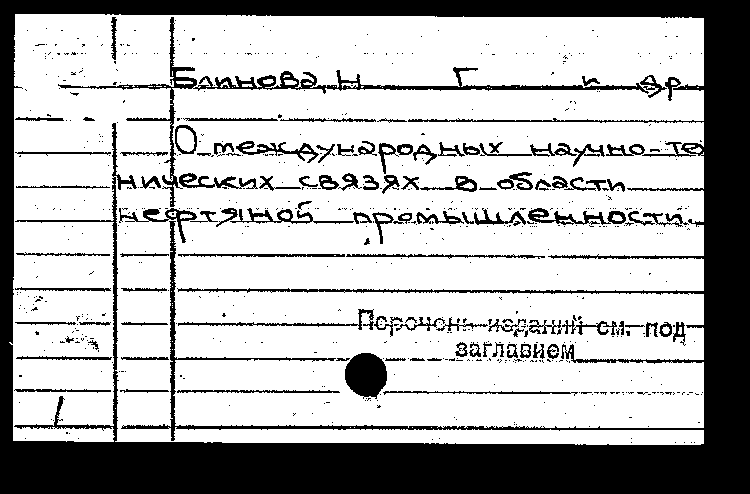 Блинова, Н Г и др
О международных научно-те
нических связях в области
нефтяной промышленности.
Перечень изданий см. под
заглавием